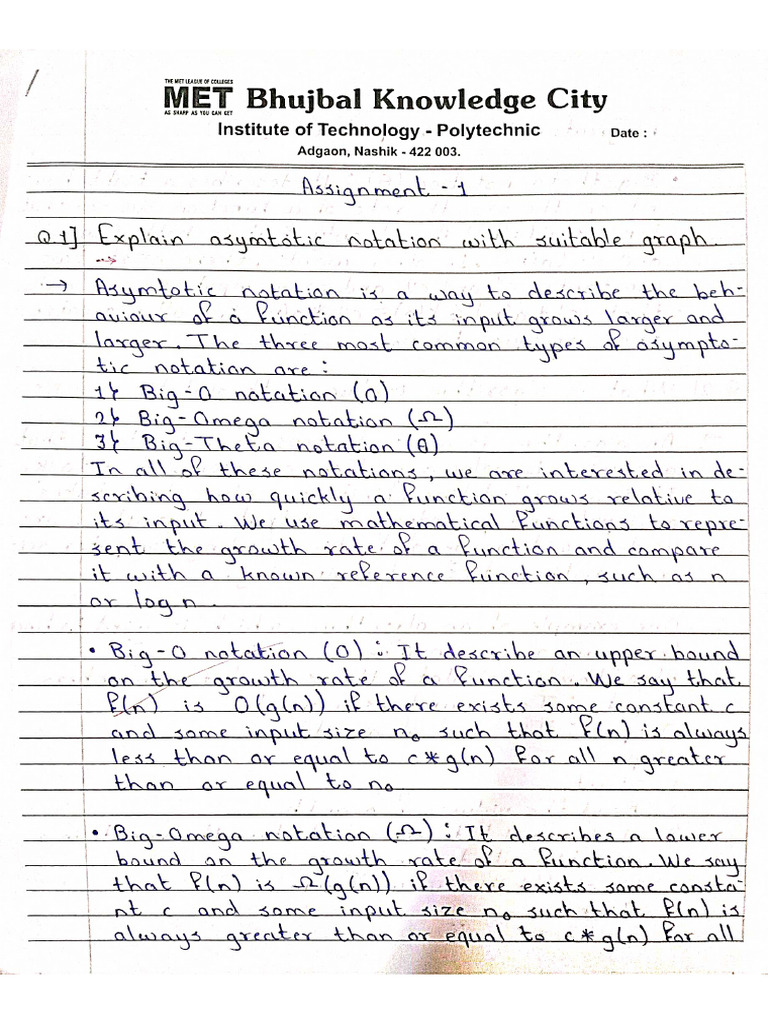 THE MET LEAGUE OF COLLEGES
MET Bhujbal Knowledge City
AS SHARP AS YOU CAN GET
Institute of Technology - Polytechnic
Date :
Adgaon, Nashik - 422 003.
Assignment - 1
Q1] Explain asymtotic notation with suitable graph.
→ Asymtotic notation is a way to describe the beh-
aviour of a function as its input grows larger and
larger. The three most common types of asympto-
tic notation are :
1} Big-O notation (O)
2} Big-Omega notation (Ω)
3} Big-Theta notation (θ)
In all of these notations, we are interested in de-
scribing how quickly a function grows relative to
its input. We use mathematical functions to repre-
sent the growth rate of a function and compare
it with a known reference function, such as n
or log n.
• Big-O notation (O) : It describe an upper bound
on the growth rate of a function. We say that
f(n) is O(g(n)) if there exists some constant c
and some input size n₀ such that f(n) is always
less than or equal to c*g(n) for all n greater
than or equal to n₀
• Big-Omega notation (Ω) : It describes a lower
bound on the growth rate of a function. We say
that f(n) is Ω(g(n)) if there exists some consta-
nt c and some input size n₀ such that f(n) is
always greater than or equal to c*g(n) for all